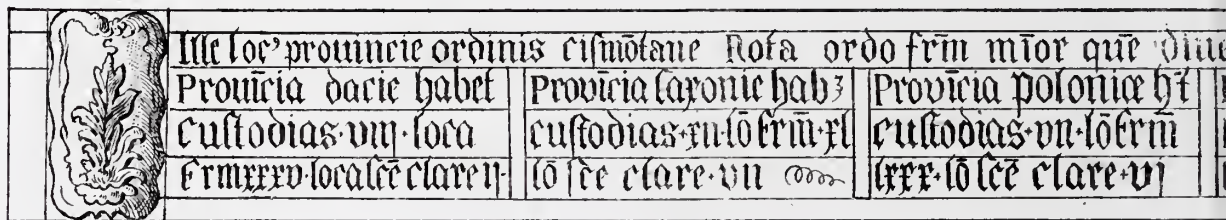 Ille loc' prouincie ordinis cismōtane Nota ordo frm̄ mīor quē diui
Prouīcia dacie habet
custodias·viij·loca
frm xxxv·loca sc̄e clare ij·
Provīcia saxonie habꝫ
custodias·xii·lō frm̄·xl
lō sc̄e clare·vii
Provīcia polonice hꝫ
custodias·vii·lō frm̄
lxxx·lō sc̄e clare·vj